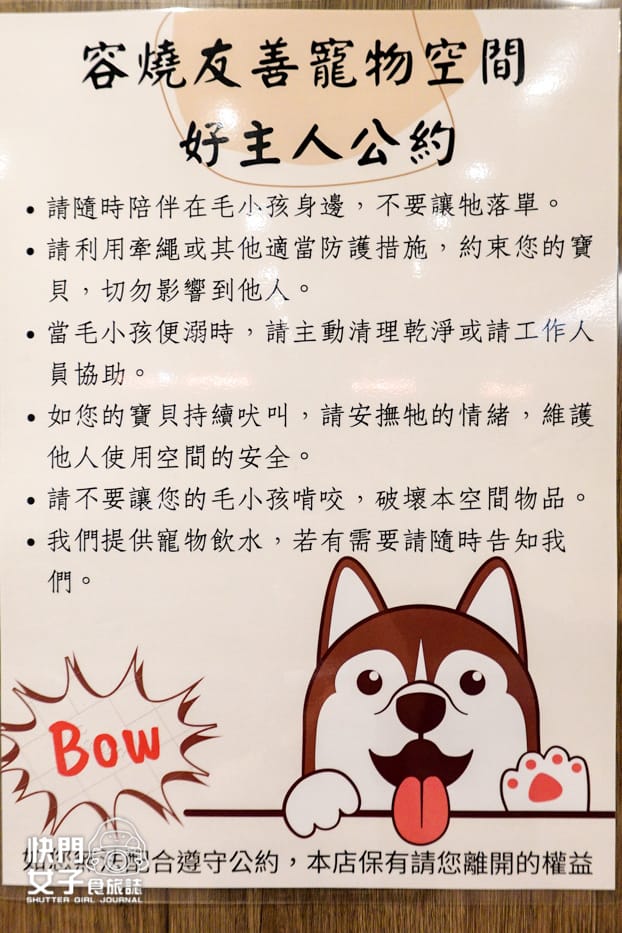 容燒友善寵物空間
好主人公約
• 請隨時陪伴在毛小孩身邊，不要讓牠落單。
• 請利用牽繩或其他適當防護措施，約束您的寶
貝，切勿影響到他人。
• 當毛小孩便溺時，請主動清理乾淨或請工作人
員協助。
• 如您的寶貝持續吠叫，請安撫牠的情緒，維護
他人使用空間的安全。
• 請不要讓您的毛小孩啃咬，破壞本空間物品。
• 我們提供寵物飲水，若有需要請隨時告知我
們。
Bow
如您無法配合遵守公約，本店保有請您離開的權益
快門
女子食旅誌
SHUTTER GIRL JOURNAL